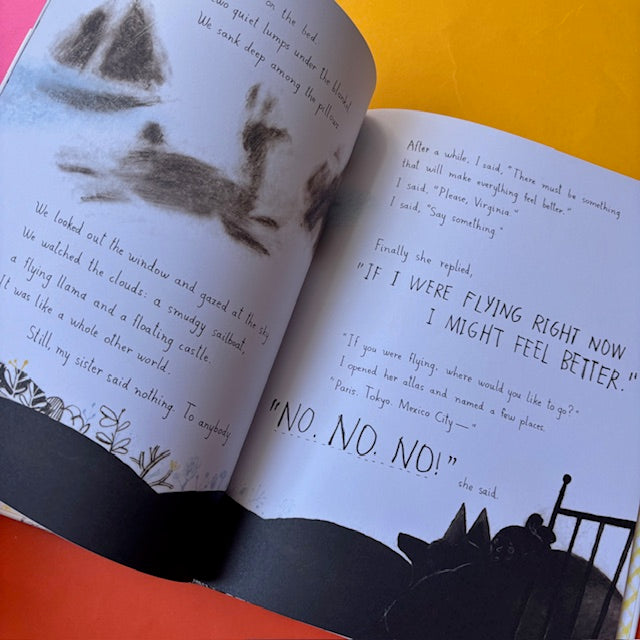 on the bed.
two quiet lumps under the blanket.
We sank deep among the pillows.
We looked out the window and gazed at the sky
We watched the clouds: a smudgy sailboat,
a flying llama and a floating castle.
It was like a whole other world.
Still, my sister said nothing. To anybody
After a while, I said, "There must be something
that will make everything feel better."
I said, "Please, Virginia."
I said, "Say something."
Finally she replied,
"IF I WERE FLYING RIGHT NOW
I MIGHT FEEL BETTER."
"If you were flying, where would you like to go?"
I opened her atlas and named a few places.
"Paris. Tokyo. Mexico City—"
"NO. NO. NO!"
she said.